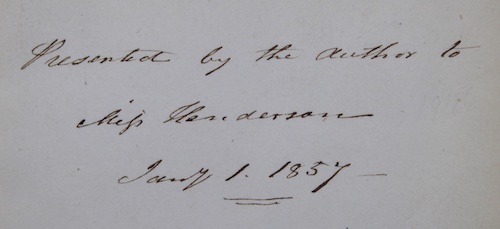 Presented by the author to
Miss Henderson
Jany 1. 1857 —